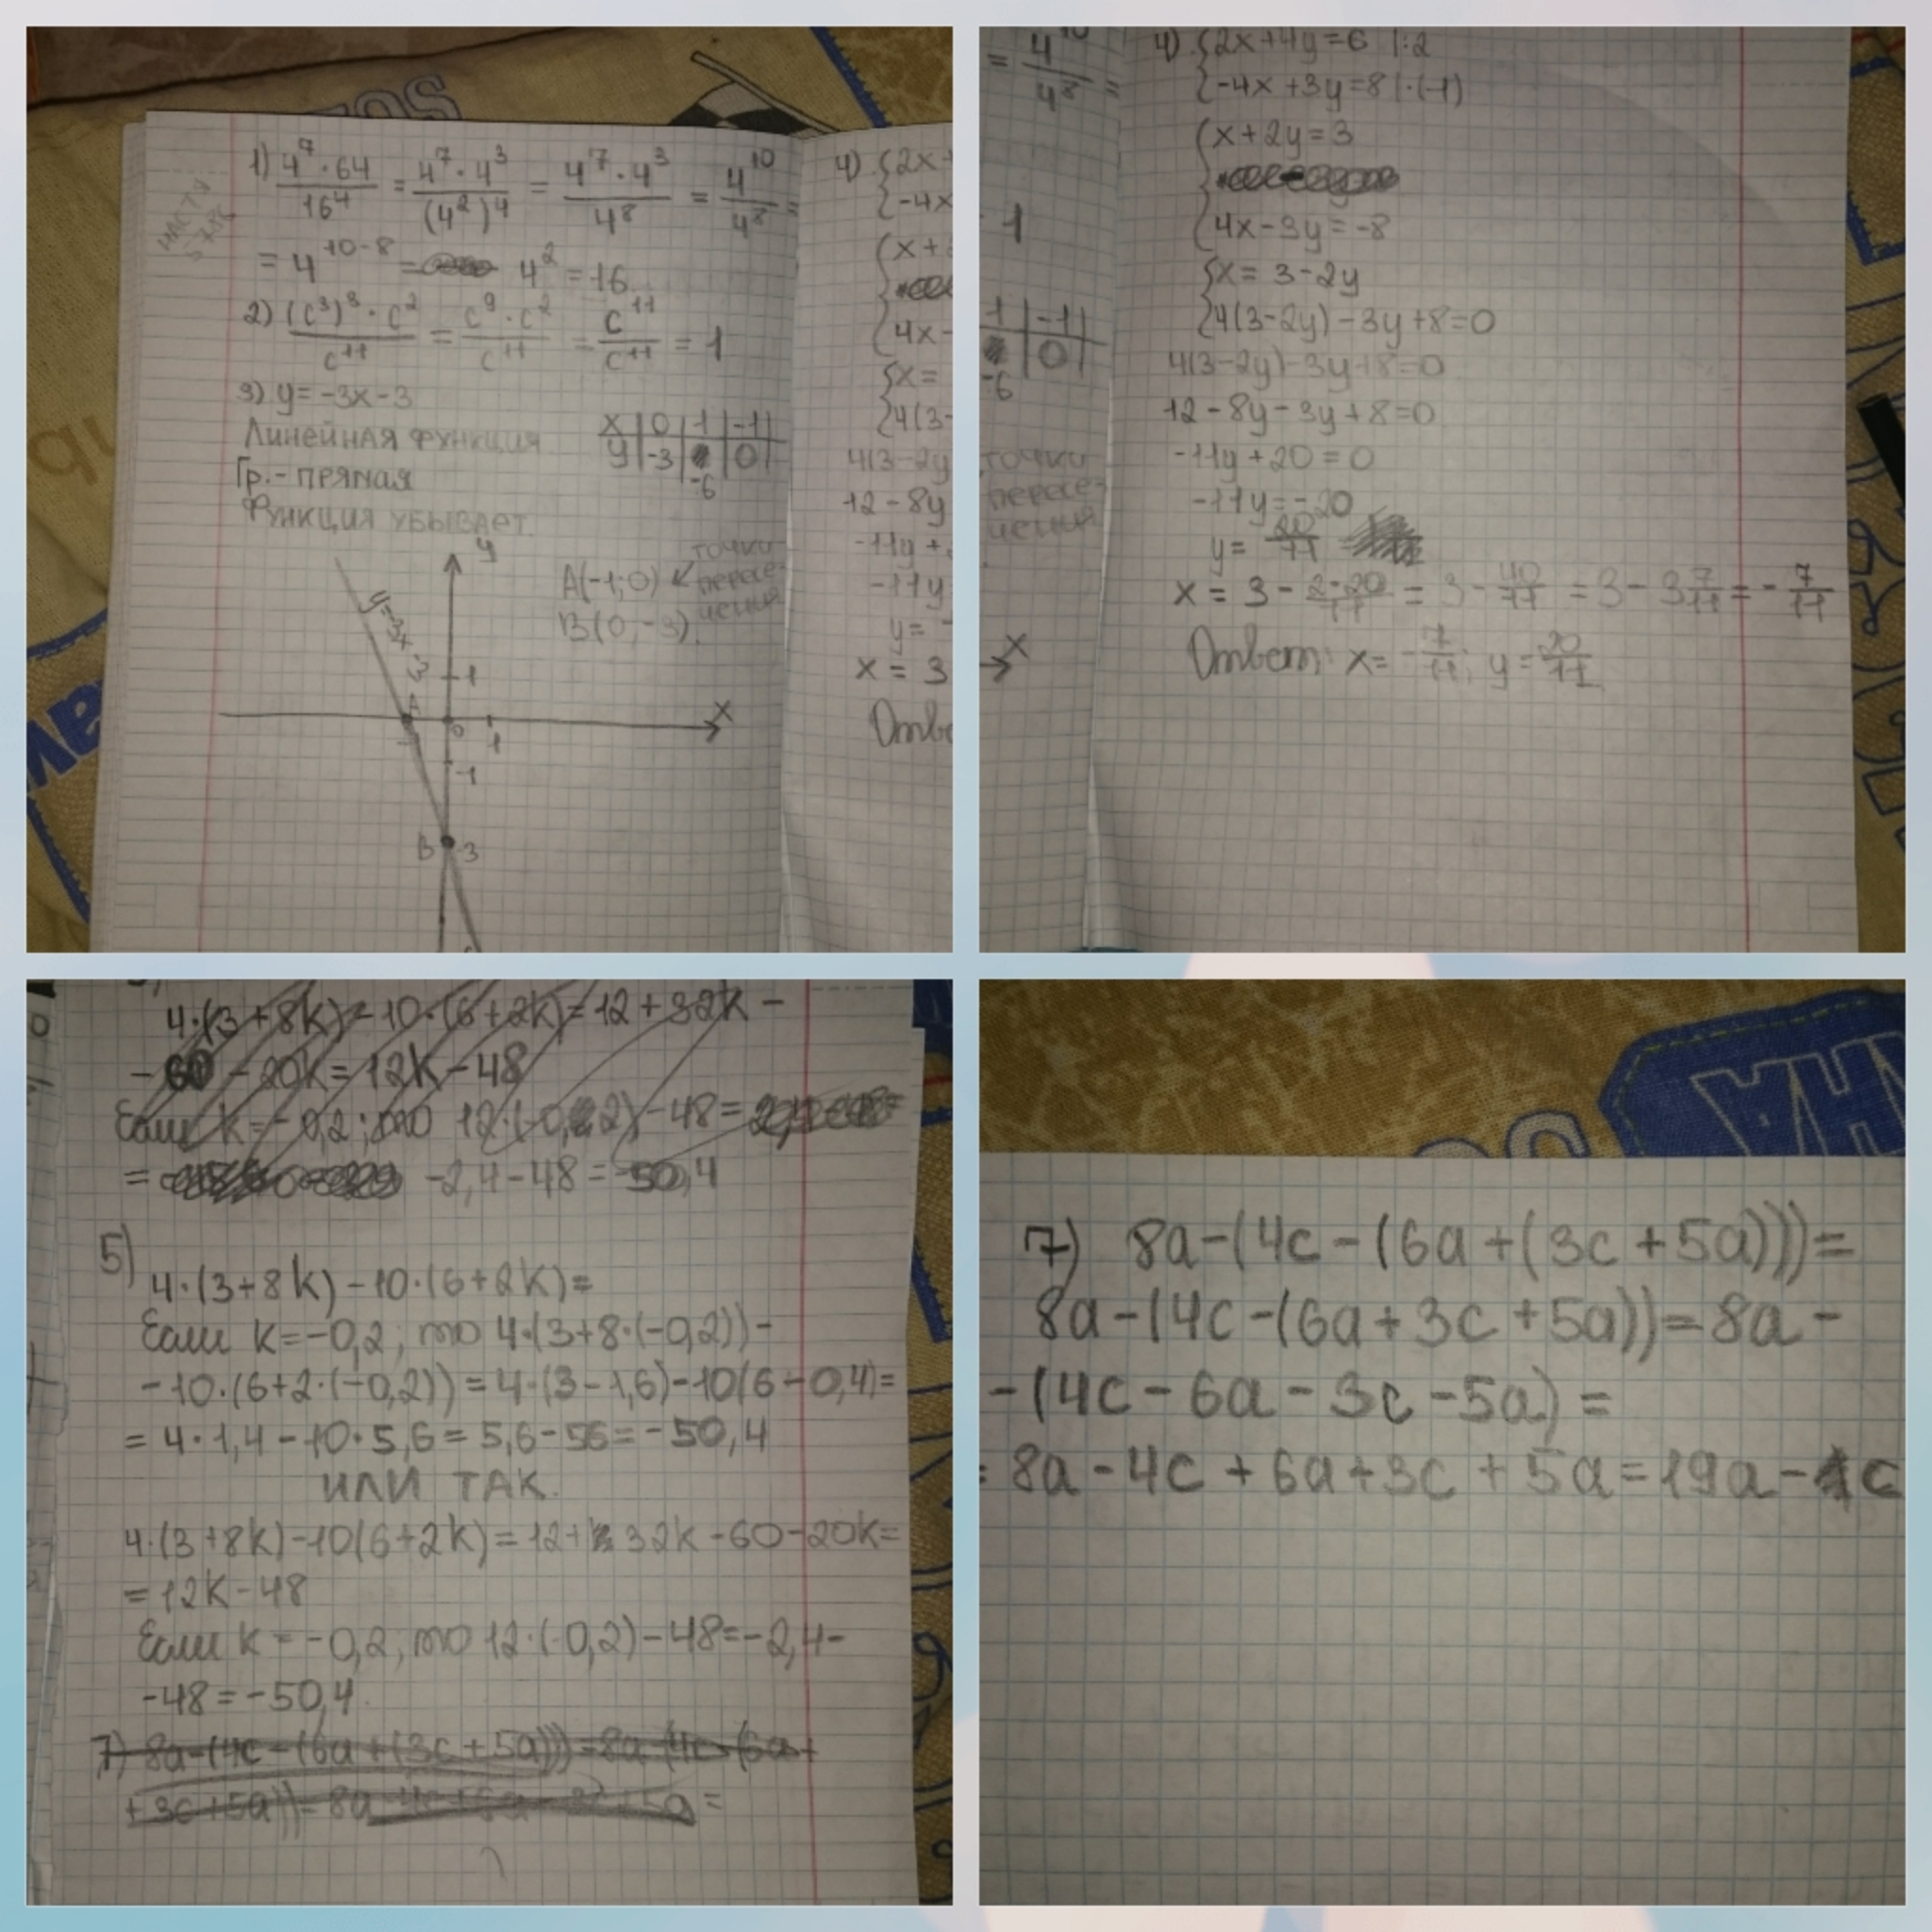 1) 4⁷·64/16⁴ = 4⁷·4³/(4²)⁴ = 4⁷·4³/4⁸ = 4¹⁰/4⁸ =
= 4¹⁰⁻⁸ = 4² = 16
2) (c³)³·c²/c¹¹ = c⁹·c²/c¹¹ = c¹¹/c¹¹ = 1
3) y = -3x - 3
Линейная функция
x | 0 | 1 | -1 |
y | -3 | -6 | 0 |
Гр.- прямая
Функция убывает.
y
A(-1;0) ↙ точки
B(0,-3).
y=-3x-3
1
A
0
1
x
-1
B -3
4) {2x+
{-4x
{x+
{4x-
{x=
{4(3-
4(3-2y
12-8y
-11y+
-11y
y=
x = 3
Отве
= 4¹⁰/4⁸ =
1
1 | -1 |
-6 | 0 |
точки
x
4) {2x+4y=6 |:2
{-4x+3y=8 |·(-1)
{x+2y=3
{4x-3y=-8
{x=3-2y
{4(3-2y)-3y+8=0
4(3-2y)-3y+8=0
12-8y-3y+8=0
-11y+20=0
-11y=-20
y= 20/11
x = 3 - 2·20/11 = 3 - 40/11 = 3 - 3 7/11 = - 7/11
Ответ: x= -7/11; y= 20/11
4·(3+8k)-10·(6+2k)=12+32k-
-60-20k=12k-48
Если k=-0,2; то 12·(-0,2)-48=
= -2,4-48=-50,4
5)
4·(3+8k)-10·(6+2k)=
Если k=-0,2; то 4·(3+8·(-0,2))-
-10·(6+2·(-0,2))=4·(3-1,6)-10(6-0,4)=
=4·1,4-10·5,6=5,6-56=-50,4
ИЛИ ТАК.
4·(3+8k)-10(6+2k)=12+32k-60-20k=
=12k-48
Если k=-0,2; то 12·(-0,2)-48=-2,4-
-48=-50,4.
7) 8a-(4c-(6a+(3c+5a)))=8a-(4c-(6a+
+3c+5a))=8a-4c+6a+3c+5a=
7) 8a-(4c-(6a+(3c+5a)))=
8a-(4c-(6a+3c+5a))=8a-
-(4c-6a-3c-5a)=
=8a-4c+6a+3c+5a=19a-1c